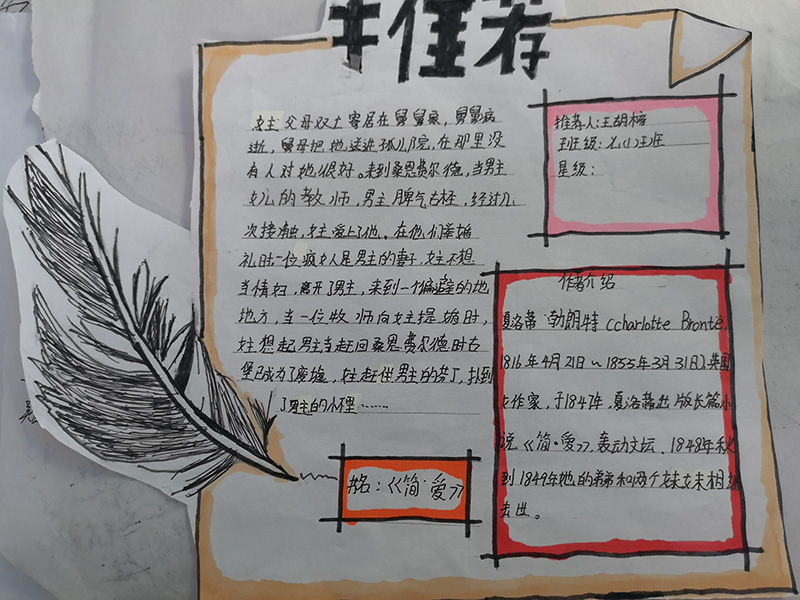 推荐
女主父母双亡寄居在舅舅家，舅舅病
逝，舅母把她送进孤儿院，在那里没
有人对她很好。来到桑恩费尔德，当男主
女儿的教师，男主脾气古怪，经过几
次接触，女主爱上了他。在他们举婚
礼时一位疯女人是男主的妻子，女主不想
当情妇，离开了男主，来到一个偏僻的地
地方，当一位牧师向女主提婚时，
女主想起男主当赶回桑恩费尔德时古
堡已成为了废墟，女主赶往男主的
了男主的怀里……
书名：《简·爱》
推荐人：王胡榕
班级：
星级：
作者介绍
夏洛蒂·勃朗特（charlotte Brontë，
1816年4月21日~1855年3月31日）英国
女作家，于1847年，夏洛蒂出版长篇小
说《简·爱》轰动文坛，1848年秋
到1849年她的弟弟和两个妹妹相继
去世。